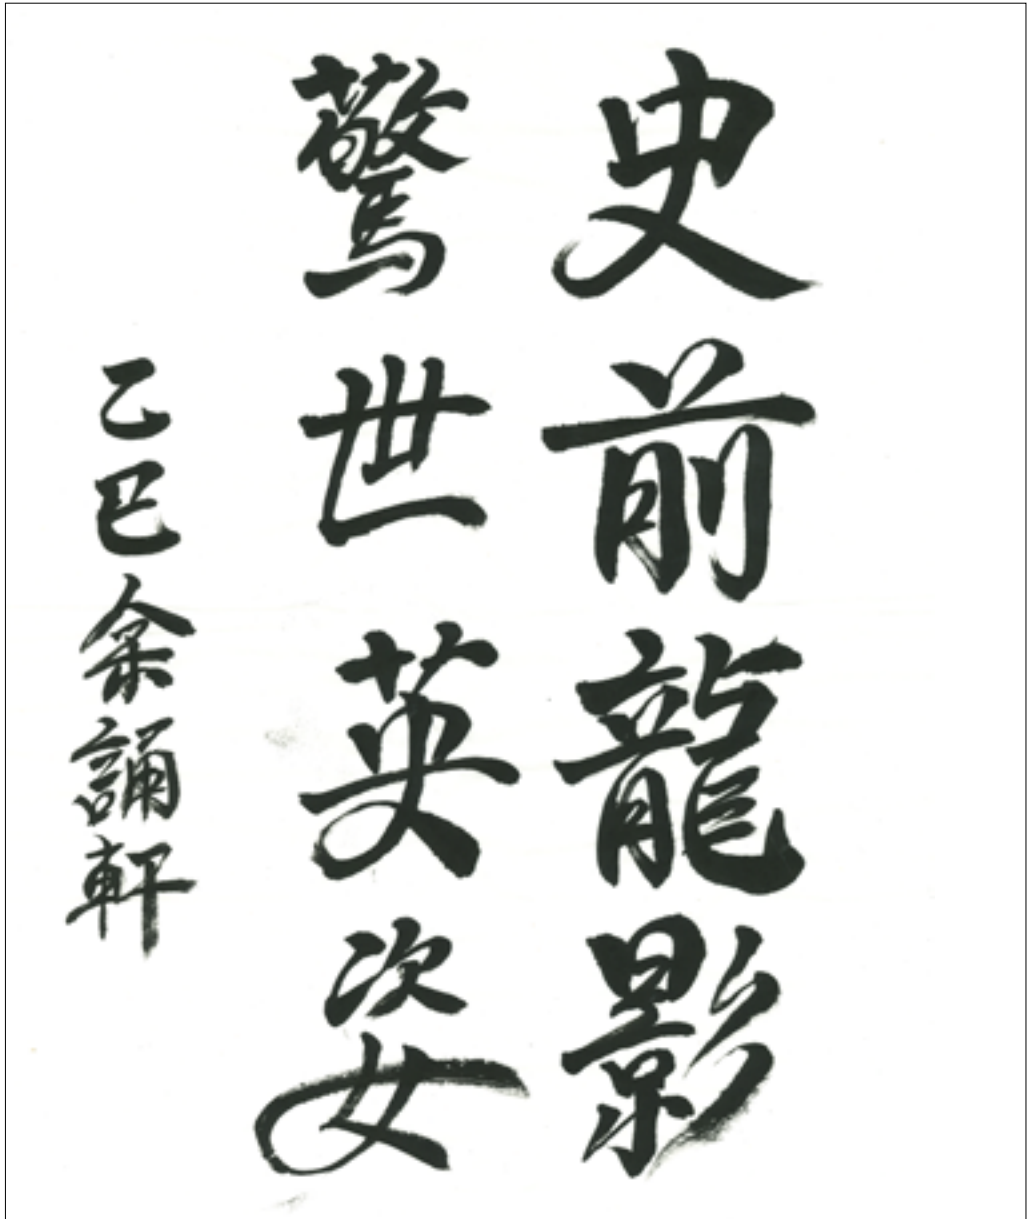 史前龍影
驚世英姿
乙巳余誦軒